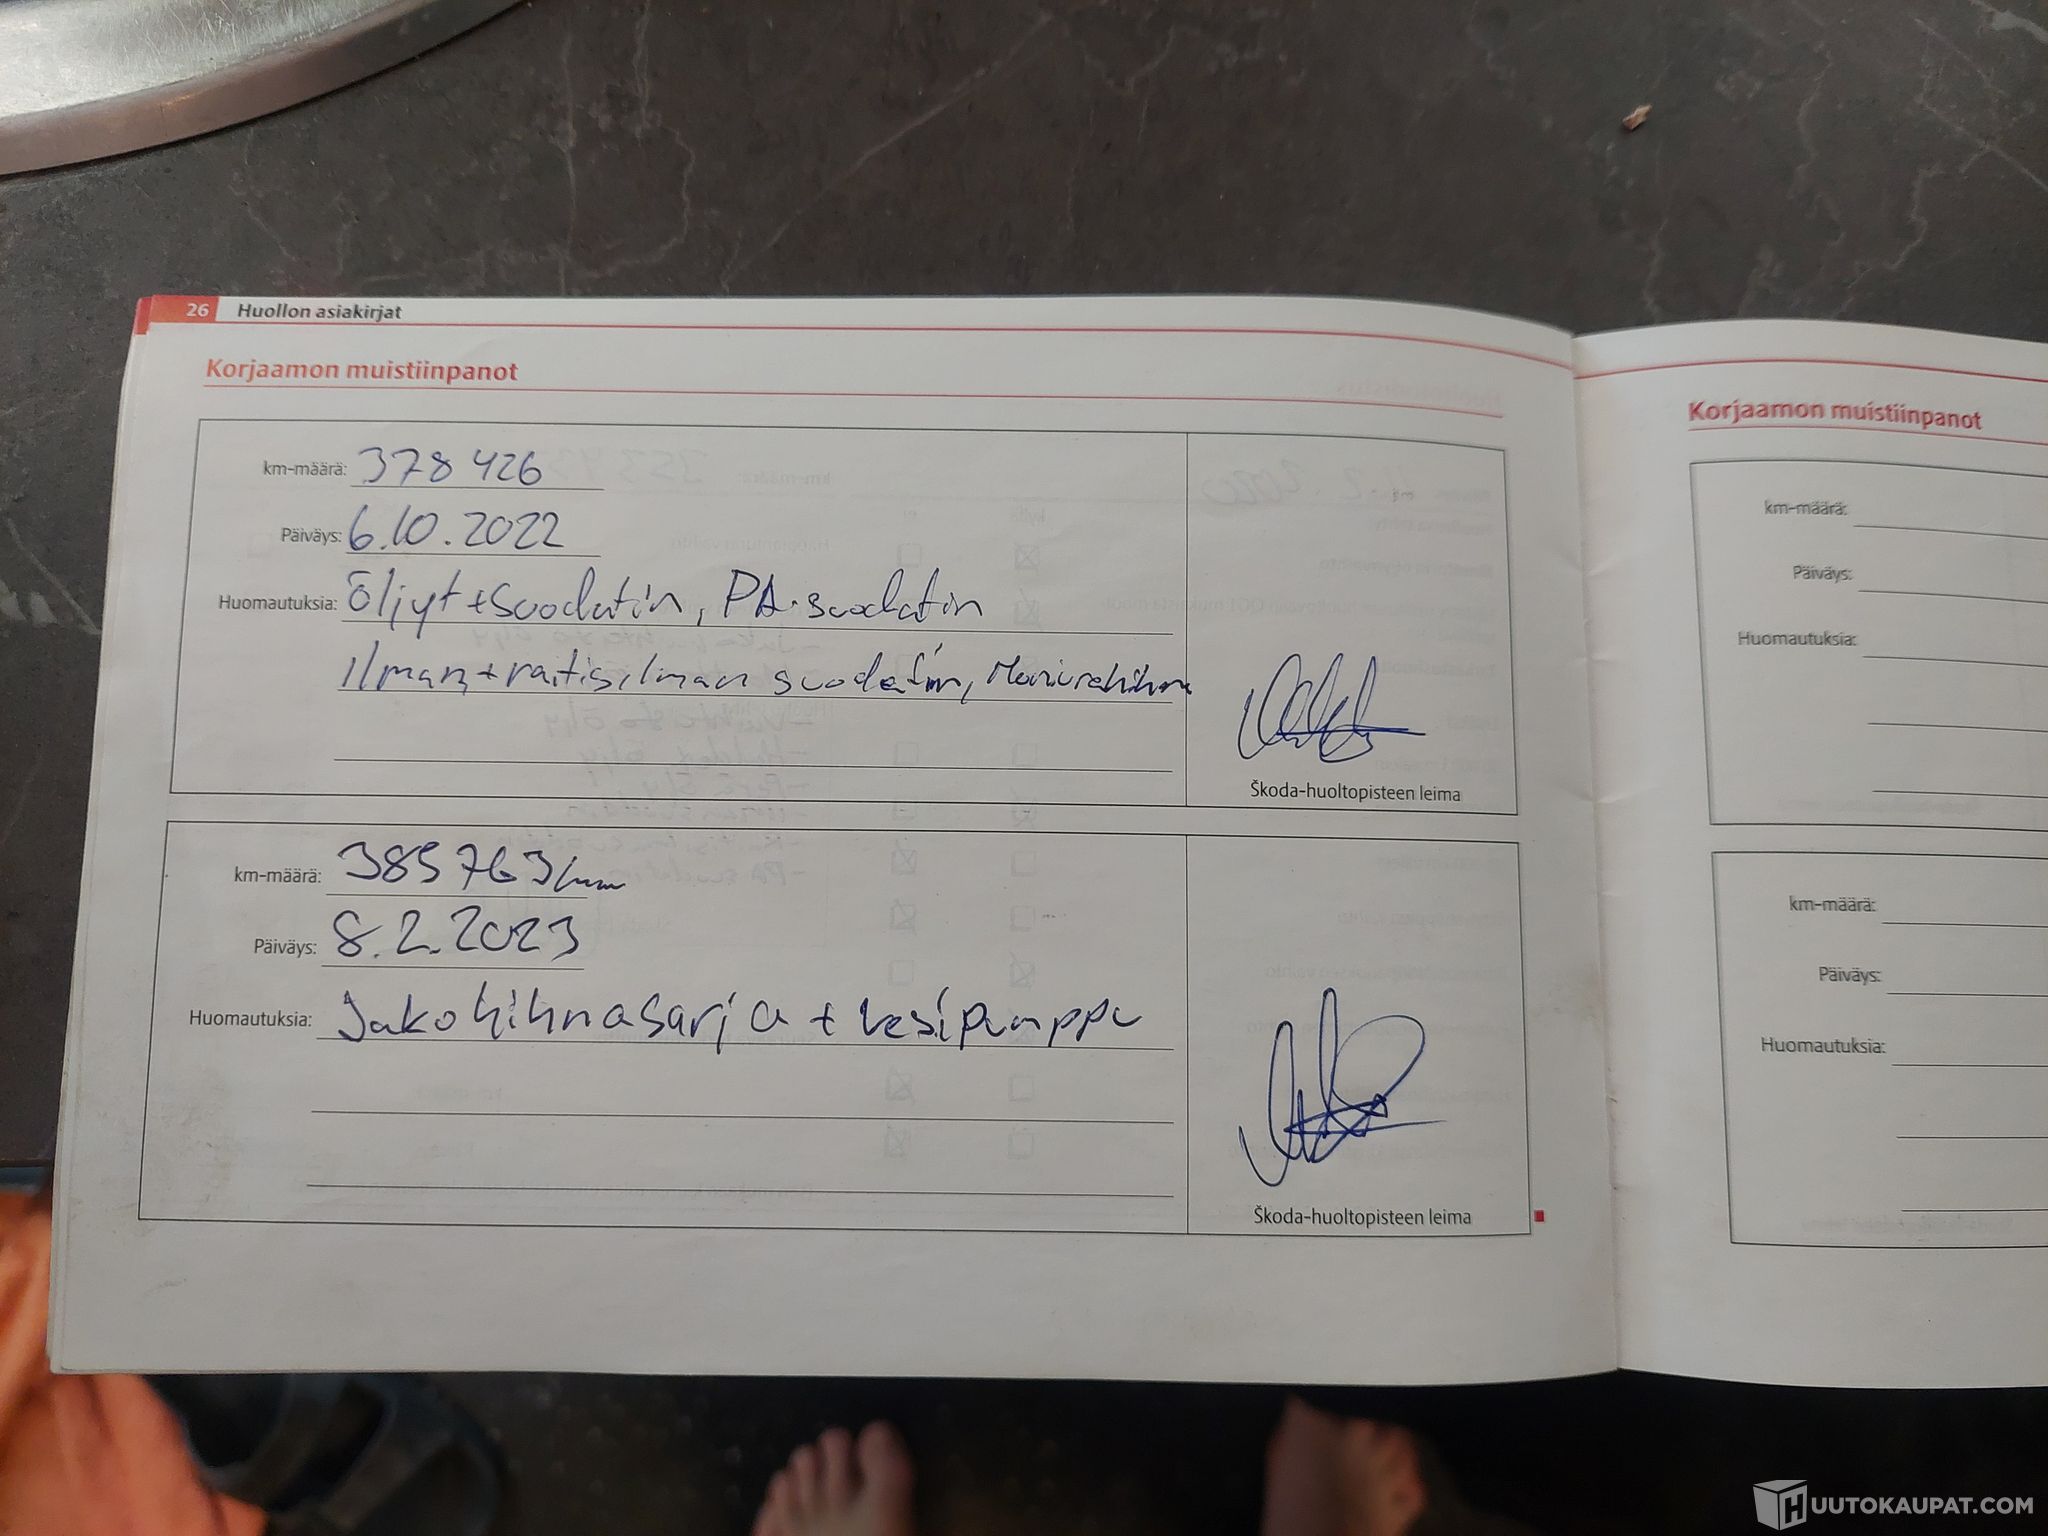 26 Huollon asiakirjat
Korjaamon muistiinpanot
km-määrä: 378 426
Päiväys: 6.10.2022
Huomautuksia: Öljyt + suodatin, PA-suodatin
Ilman + raitisilman suodatin, Moniurahihna
Škoda-huoltopisteen leima
km-määrä: 385 763 km
Päiväys: 8.2.2023
Huomautuksia: Jakohihnasarja + vesipumppu
Škoda-huoltopisteen leima
Korjaamon muistiinpanot
km-määrä:
Päiväys:
Huomautuksia:
km-määrä:
Päiväys:
Huomautuksia:
HUUTOKAUPAT.COM